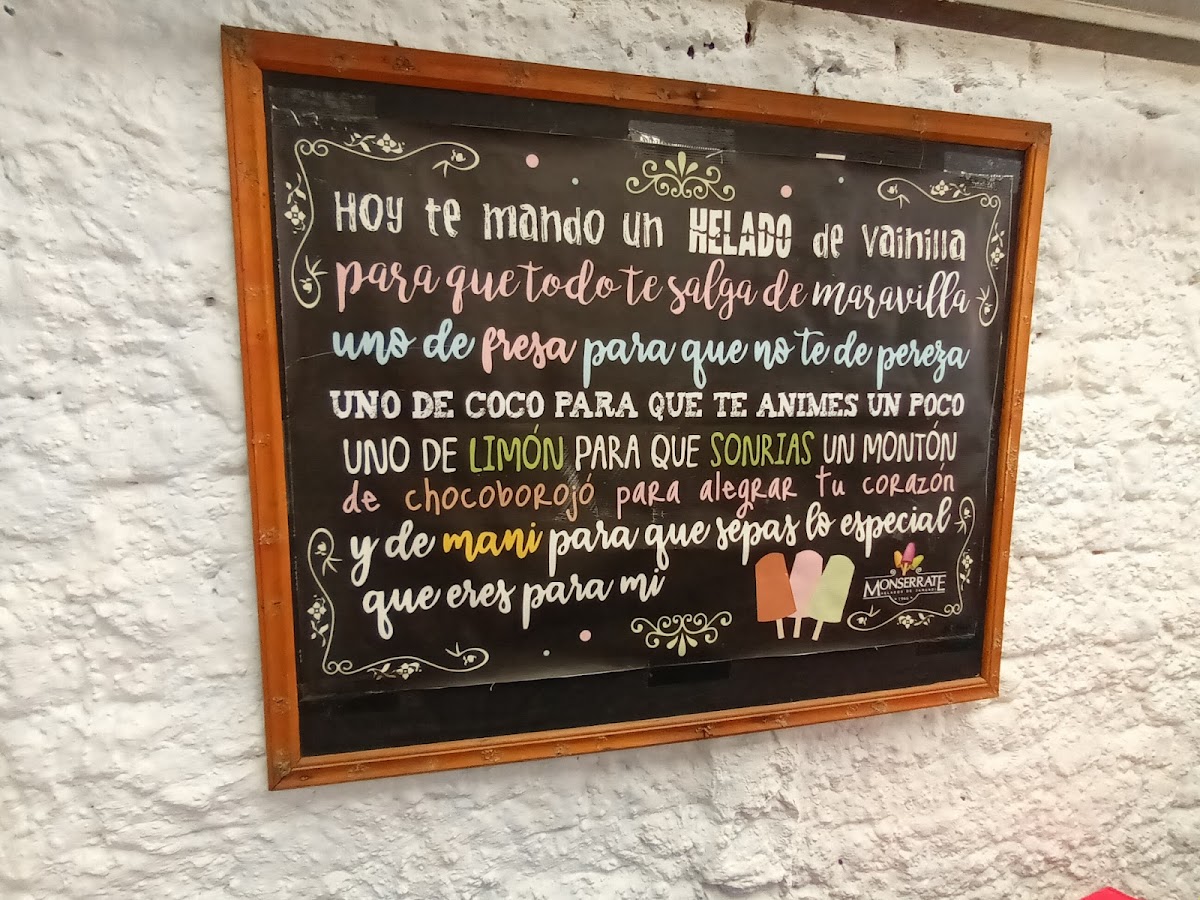 Hoy te mando un HELADO de vainilla
para que todo te salga de maravilla
uno de fresa para que no te de pereza
UNO DE COCO PARA QUE TE ANIMES UN POCO
UNO DE LIMÓN PARA QUE SONRIAS UN MONTÓN
de chocoborojó para alegrar tu corazón
y de mani para que sepas lo especial
que eres para mi
MONSERRATE